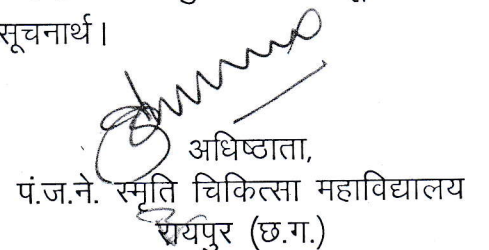 सूचनार्थ।
अधिष्ठाता,
पं.ज.ने. स्मृति चिकित्सा महाविद्यालय
रायपुर (छ.ग.)